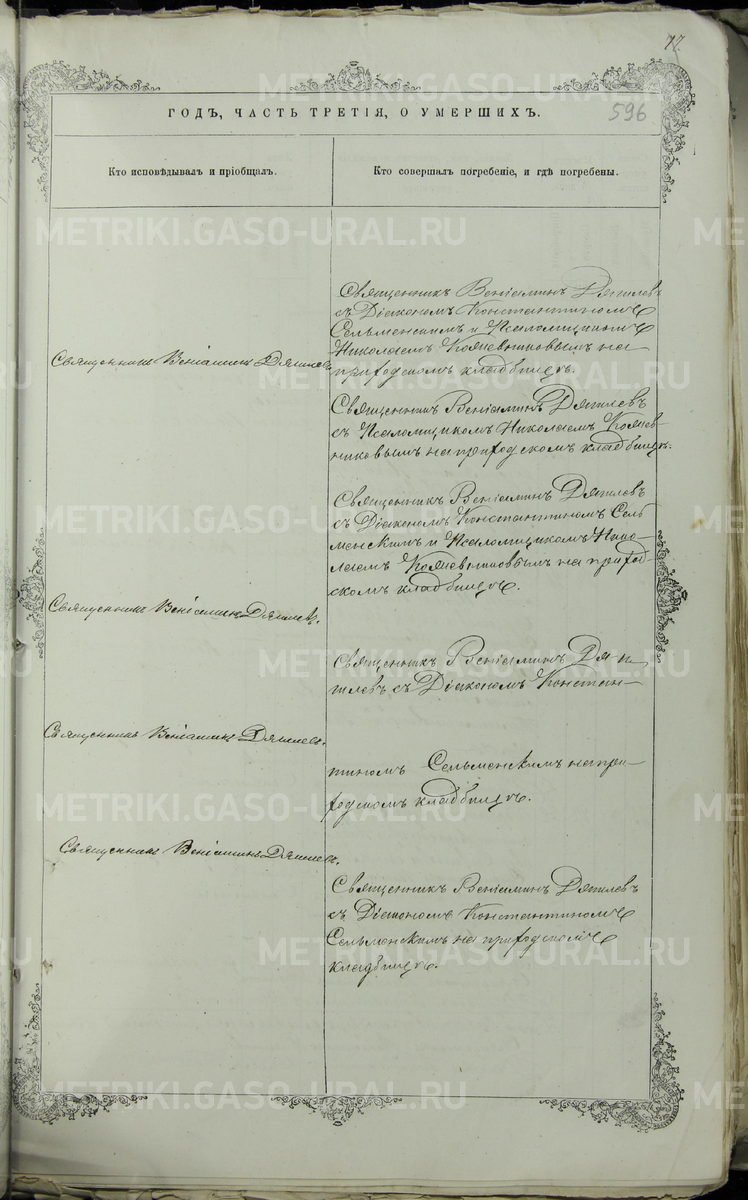 77
596
ГОДЪ, ЧАСТЬ ТРЕТІЯ, О УМЕРШИХЪ.
Кто исповѣдывалъ и пріобщалъ.
Кто совершалъ погребеніе, и гдѣ погребены.
Священникъ Веніаминъ Дягилевъ
съ Діакономъ Константиномъ
Сельменскимъ и Псаломщикомъ
Николаемъ Кожевниковымъ на
приходскомъ кладбищѣ.
Священникъ Веніаминъ Дягилевъ
Священникъ Веніаминъ Дягилевъ
съ Псаломщикомъ Николаемъ Кожев-
никовымъ на приходскомъ кладбищѣ.
Священникъ Веніаминъ Дягилевъ
съ Діакономъ Константиномъ Сель
менскимъ и Псаломщикомъ Нико-
лаемъ Кожевниковымъ на приход-
скомъ кладбищѣ.
Священникъ Веніаминъ Дягилевъ.
Священникъ Веніаминъ Дяги
гилевъ съ Діакономъ Констан-
Священникъ Веніаминъ Дягилевъ.
тиномъ Сельменскимъ на при-
ходскомъ кладбищѣ.
Священникъ Веніаминъ Дягилевъ.
Священникъ Веніаминъ Дягилевъ
съ Діакономъ Константиномъ
Сельменскимъ на приходскомъ
кладбищѣ.
METRIKI.GASO-URAL.RU